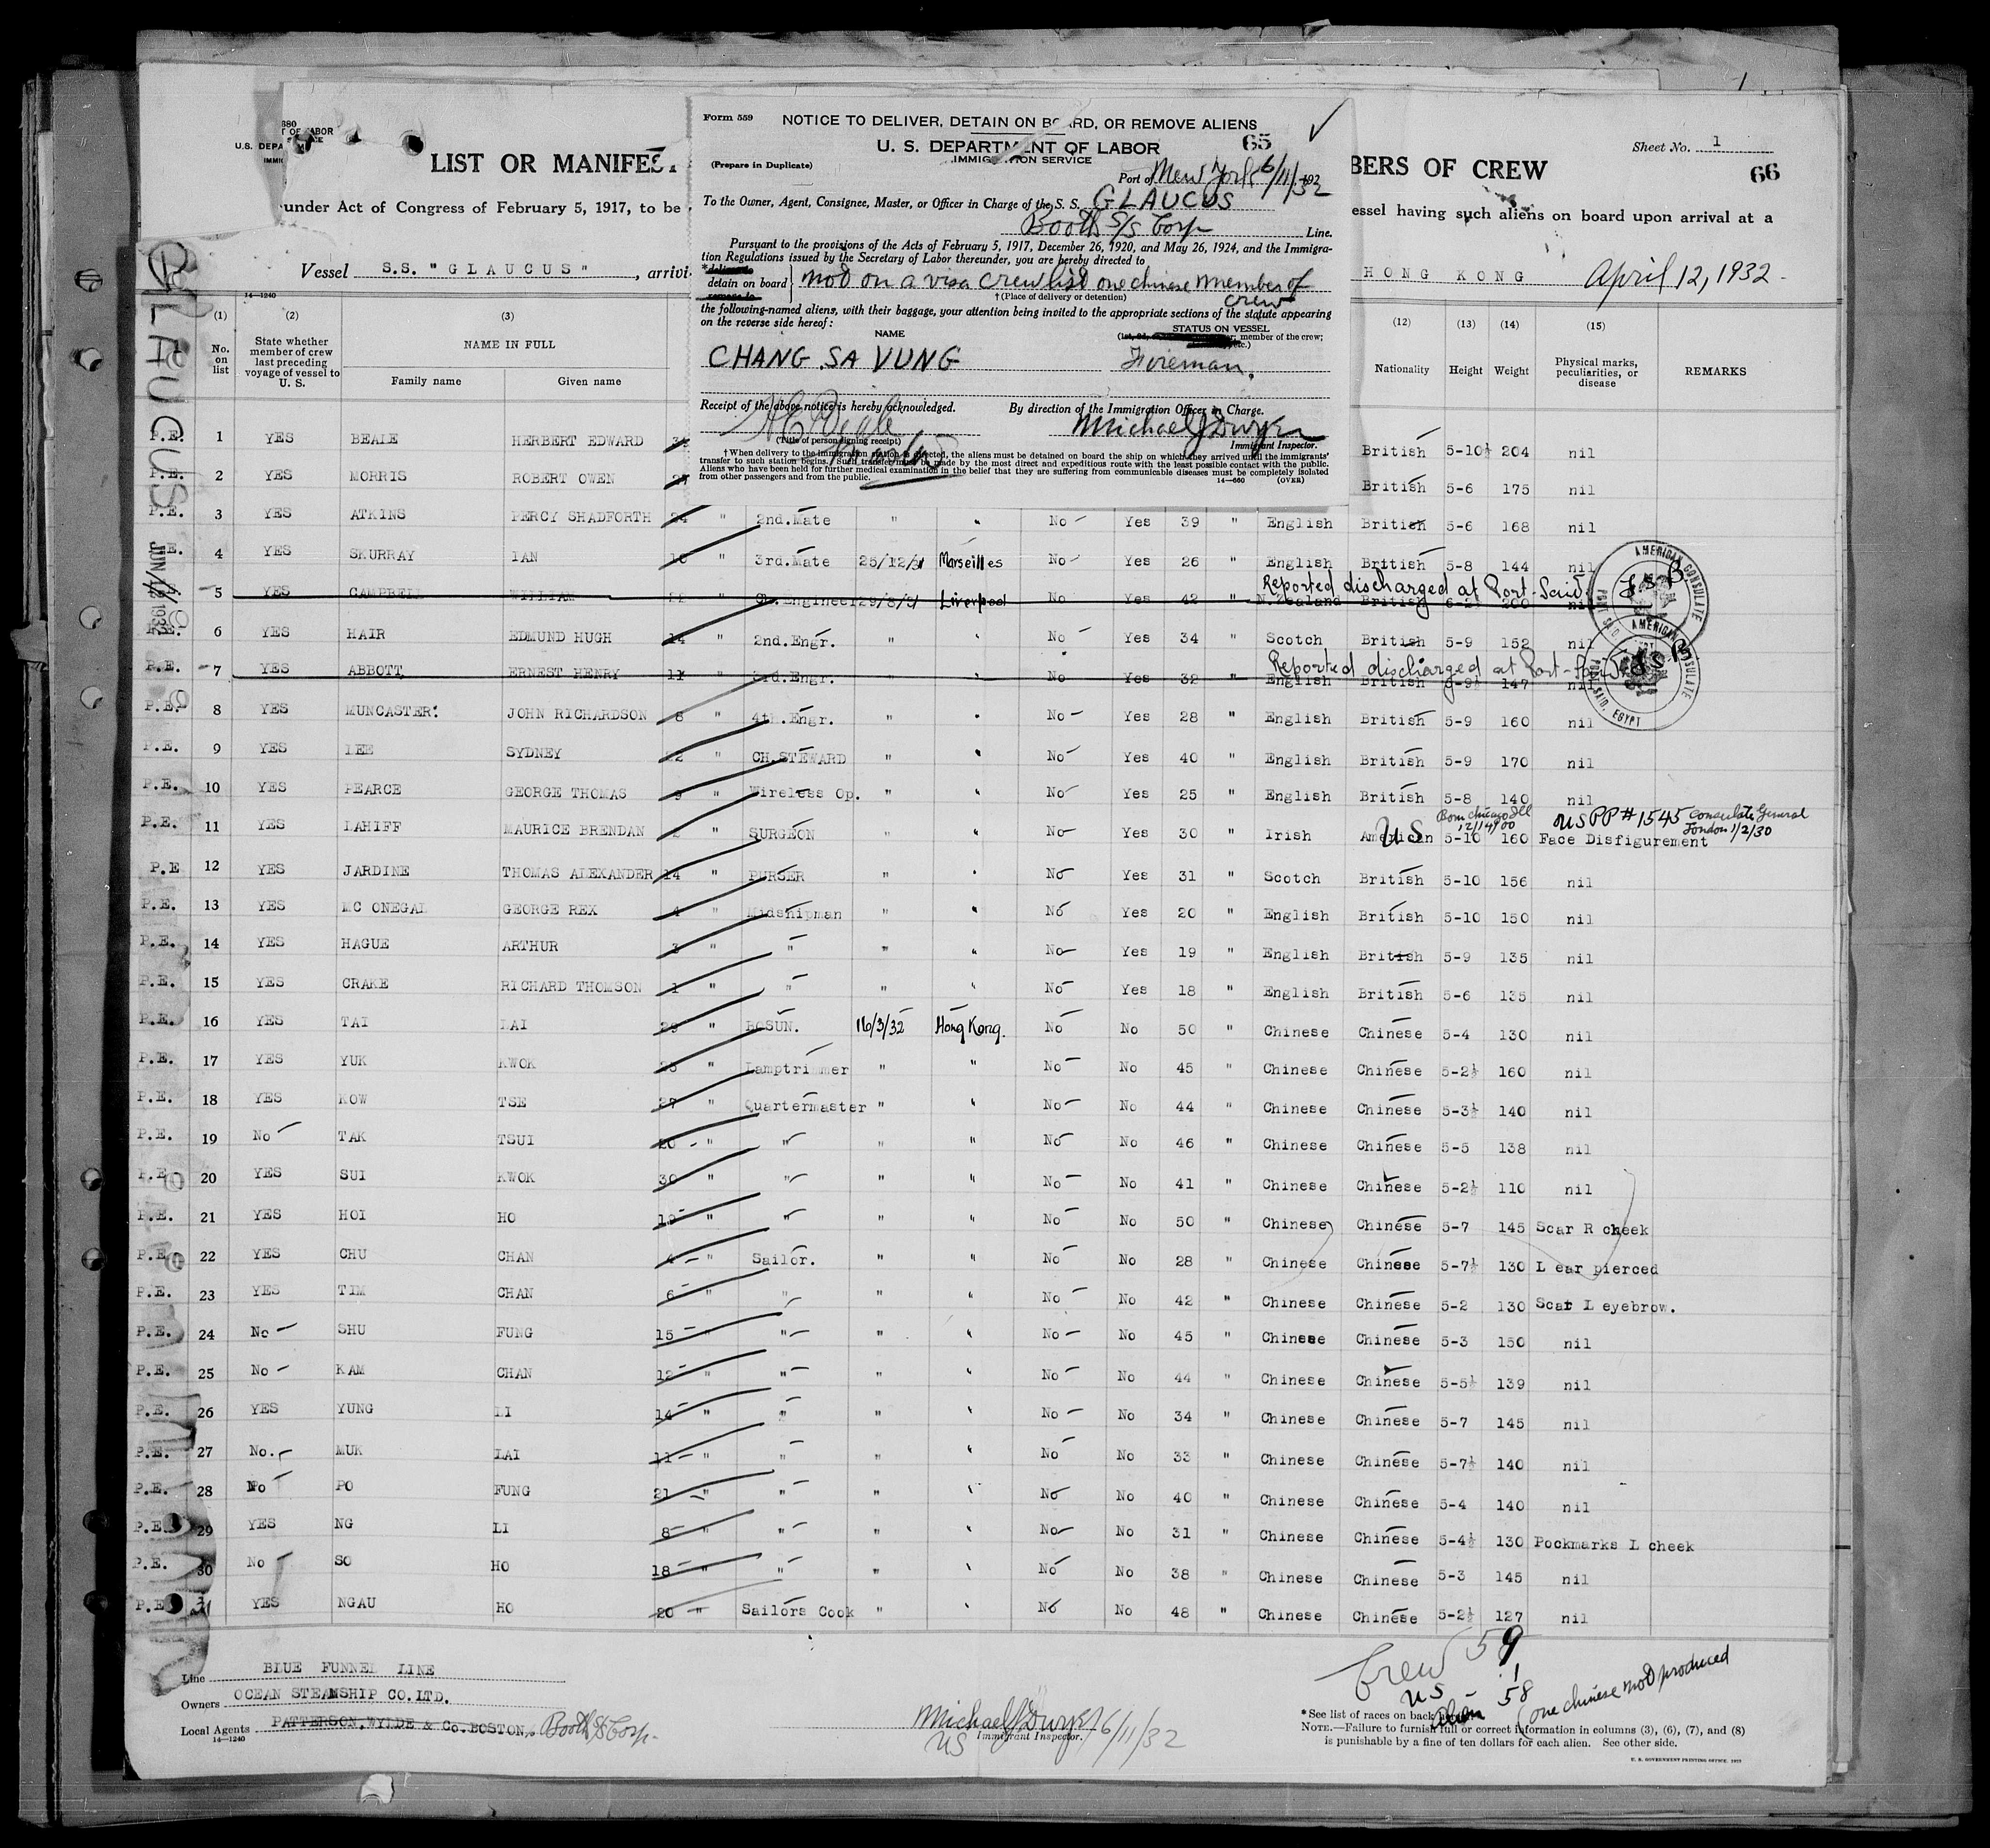 680
U.S. DEPA
T OF LABOR
IMMI
LIST OR MANIFES
BERS OF CREW
Sheet No. 1
66
under Act of Congress of February 5, 1917, to be
essel having such aliens on board upon arrival at a
Vessel S.S. "GLAUCUS", arrivi
HONG KONG April 12, 1932
Form 559
NOTICE TO DELIVER, DETAIN ON BOARD, OR REMOVE ALIENS
65
U. S. DEPARTMENT OF LABOR
(Prepare in Duplicate)
IMMIGRATION SERVICE
Port of New York 6/11/32
To the Owner, Agent, Consignee, Master, or Officer in Charge of the S. S. GLAUCUS
Booth S/S Corp Line.
Pursuant to the provisions of the Acts of February 5, 1917, December 26, 1920, and May 26, 1924, and the Immigra-
tion Regulations issued by the Secretary of Labor thereunder, you are hereby directed to
detain on board not on a visa crew list one chinese member of
† (Place of delivery or detention) crew
the following-named aliens, with their baggage, your attention being invited to the appropriate sections of the statute appearing
on the reverse side hereof:
NAME
STATUS ON VESSEL
member of the crew;
etc.)
CHANG SA VUNG Fireman.
Receipt of the above notice is hereby acknowledged.
By direction of the Immigration Officer in Charge.
Michael J Dwyer
(Title of person signing receipt)
Immigrant Inspector.
† When delivery to the immigration station is directed, the aliens must be detained on board the ship on which they arrived until the immigrants'
transfer to such station begins. Such transfer must be made by the most direct and expeditious route with the least possible contact with the public.
Aliens who have been held for further medical examination in the belief that they are suffering from communicable diseases must be completely isolated
from other passengers and from the public.
14—660 (OVER)
14—1240
(1) (2) (3) (12) (13) (14) (15)
No. on list
State whether member of crew last preceding voyage of vessel to U. S.
NAME IN FULL
Family name Given name
Nationality Height Weight
Physical marks, peculiarities, or disease
REMARKS
GLAUCUS
P.E. 1 YES BEALE HERBERT EDWARD British 5-10½ 204 nil
P.E. 2 YES MORRIS ROBERT OWEN British 5-6 175 nil
P.E. 3 YES ATKINS PERCY SHADFORTH 24 " 2nd.Mate " " No Yes 39 " English British 5-6 168 nil
4 YES SMURRAY IAN 3rd.Mate 25/12/31 Marseilles No Yes 26 " English British 5-8 144 nil
Reported discharged at Port-Said
5 YES CAMPBELL WILLIAM 22 " Ch.Engineer Liverpool No Yes 42 " N.Zealand British 200 nil
AMERICAN CONSULATE PORT SAID
P.E. 6 YES HAIR EDMUND HUGH 14 " 2nd.Engr. " " No Yes 34 " Scotch British 5-9 152 nil
Reported discharged at Port-Said
P.E. 7 YES ABBOTT ERNEST HENRY 11 " 3rd.Engr. " " No Yes 32 " English British 147 nil
AMERICAN CONSULATE PORT SAID, EGYPT
P.E. 8 YES MUNCASTER JOHN RICHARDSON 8 " 4th.Engr. " " No Yes 28 " English British 5-9 160 nil
P.E. 9 YES LEE SYDNEY 22 " CH.STEWARD " " No Yes 40 " English British 5-9 170 nil
P.E. 10 YES PEARCE GEORGE THOMAS 9 " Wireless Op. " " No Yes 25 " English British 5-8 140 nil
Born Chicago Ill 12/14/00 US PP # 1545 Consulate General London 1/2/30
P.E. 11 YES LAHIFF MAURICE BRENDAN 2 " SURGEON " " No Yes 30 " Irish American US 5-10 160 Face Disfigurement
P.E 12 YES JARDINE THOMAS ALEXANDER 14 " PURSER " " No Yes 31 " Scotch British 5-10 156 nil
P.E. 13 YES MC ONEGAL GEORGE REX 4 " Midshipman " " No Yes 20 " English British 5-10 150 nil
P.E. 14 YES HAGUE ARTHUR 3 " " " " No Yes 19 " English British 5-9 135 nil
P.E. 15 YES CRAKE RICHARD THOMSON 1 " " " " No Yes 18 " English British 5-6 135 nil
P.E. 16 YES TAI LAI " BOSUN. 16/3/32 Hong Kong. No No 50 " Chinese Chinese 5-4 130 nil
P.E. 17 YES YUK KWOK " Lamptrimmer " " No No 45 " Chinese Chinese 5-2½ 160 nil
P.E. 18 YES KOW TSE 27 " Quartermaster " " No No 44 " Chinese Chinese 5-3½ 140 nil
P.E. 19 No TAK TSUI 20 " " " " No No 46 " Chinese Chinese 5-5 138 nil
P.E. 20 YES SUI KWOK 30 " " " " No No 41 " Chinese Chinese 5-2½ 110 nil
P.E. 21 YES HOI HO 19 " " " " No No 50 " Chinese Chinese 5-7 145 Scar R cheek
P.E. 22 YES CHU CHAN 4 " Sailor. " " No No 28 " Chinese Chinese 5-7½ 130 L ear pierced
P.E. 23 YES TIM CHAN 6 " " " " No No 42 " Chinese Chinese 5-2 130 Scar L eyebrow.
P.E. 24 No SHU FUNG 15 " " " " No No 45 " Chinese Chinese 5-3 150 nil
P.E. 25 No KAM CHAN 12 " " " " No No 44 " Chinese Chinese 5-5½ 139 nil
P.E. 26 YES YUNG LI 14 " " " " No No 34 " Chinese Chinese 5-7 145 nil
P.E. 27 No. MUK LAI 11 " " " " No No 33 " Chinese Chinese 5-7½ 140 nil
P.E. 28 No PO FUNG 21 " " " " No No 40 " Chinese Chinese 5-4 140 nil
P.E. 29 YES NG LI 8 " " " " No No 31 " Chinese Chinese 5-4½ 130 Pockmarks L cheek
P.E. 30 No SO HO 18 " " " " No No 38 " Chinese Chinese 5-3 145 nil
P.E. 31 YES NGAU HO 20 " Sailors Cook " " No No 48 " Chinese Chinese 5-2½ 127 nil
Line BLUE FUNNEL LINE
Owners OCEAN STEAMSHIP CO.LTD.
Local Agents PATTERSON, WYLDE & Co. BOSTON. Booth SS Corp.
14—1240
Michael J Dwyer 6/11/32
US Immigrant Inspector.
Crew 59
US 1
Alien 58 (one chinese not produced
* See list of races on back
NOTE.—Failure to furnish full or correct information in columns (3), (6), (7), and (8)
is punishable by a fine of ten dollars for each alien. See other side.
U. S. GOVERNMENT PRINTING OFFICE